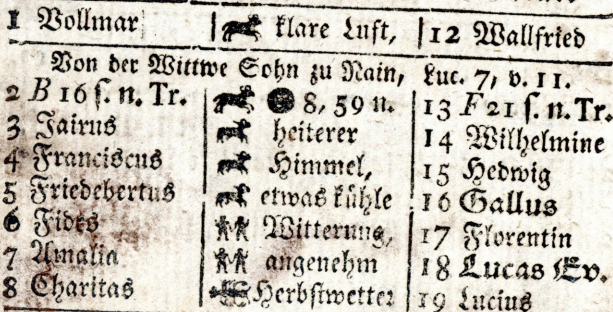 1 Vollmar | klare Luft, | 12 Wallfried
Von der Wittwe Sohn zu Nain, Luc. 7, v. 11.
2 B 16 ſ. n. Tr. | 8, 59 n. | 13 F 21 ſ. n. Tr.
3 Jairus | heiterer | 14 Wilhelmine
4 Franciscus | Himmel, | 15 Hedwig
5 Friedebertus | etwas kühle | 16 Gallus
6 Fides | Witterung, | 17 Florentin
7 Amalia | angenehm | 18 Lucas Ev.
8 Charitas | Herbſtwetter | 19 Lucius